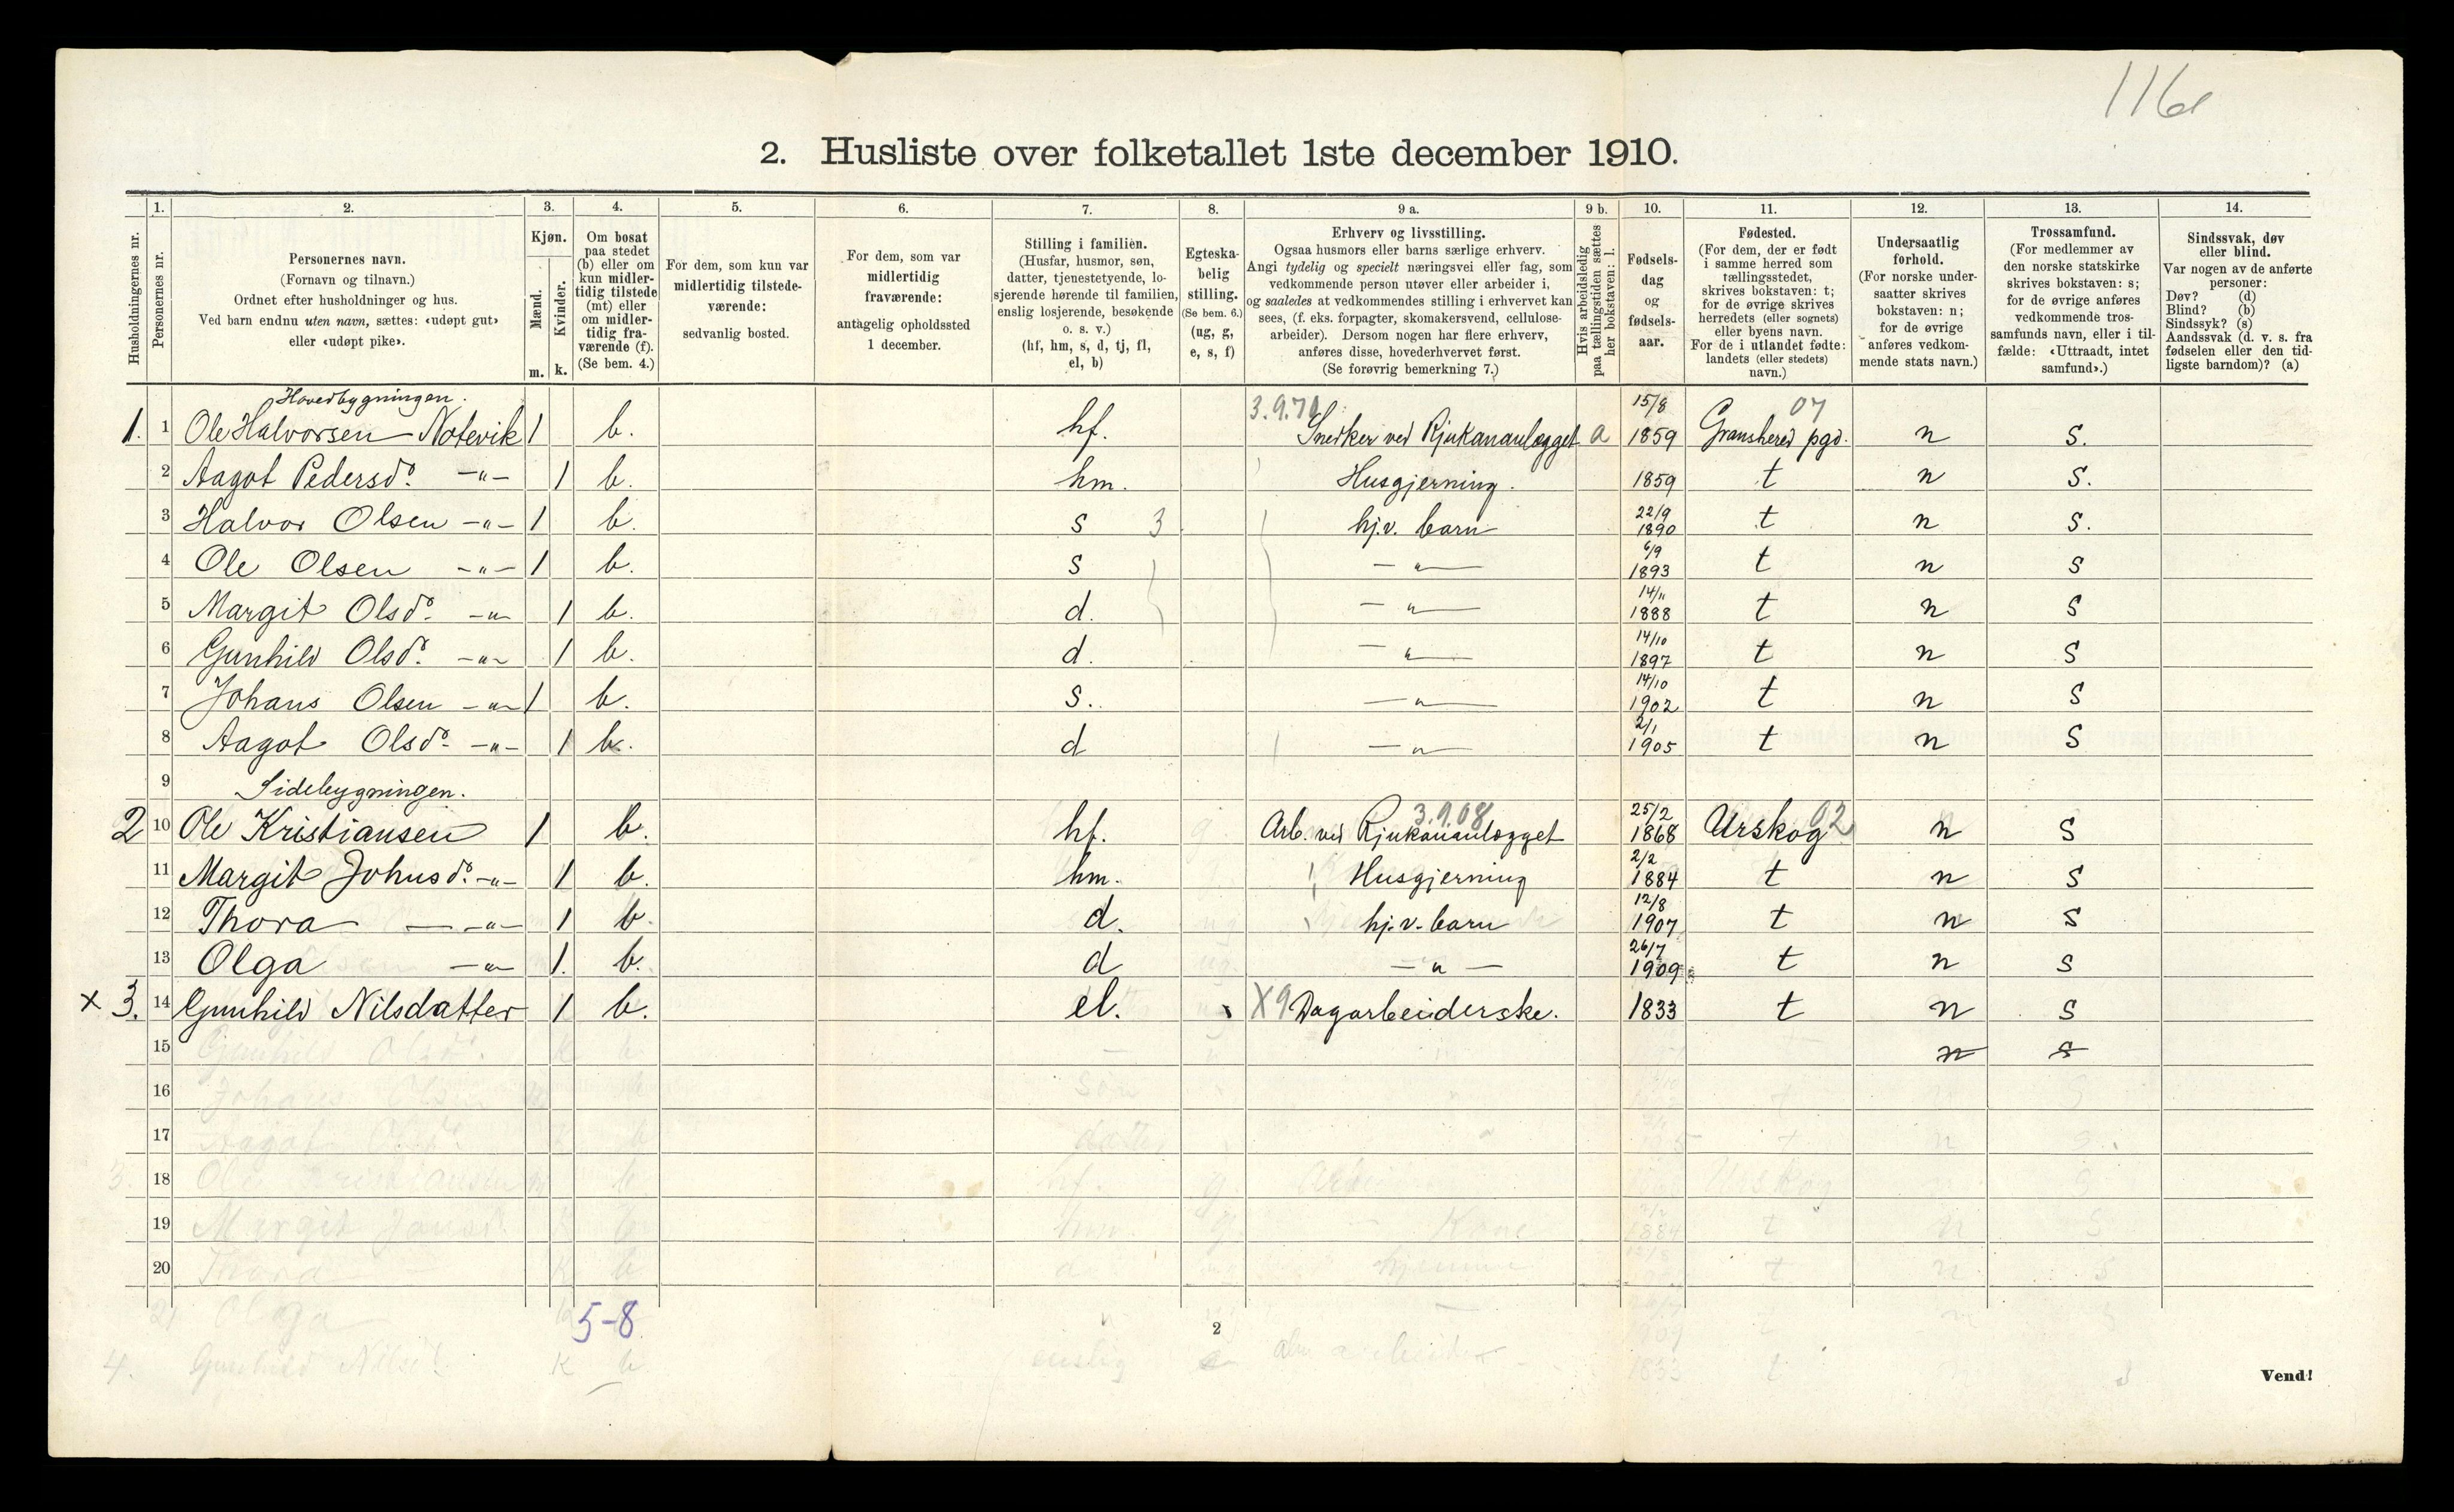 116
2. Husliste over folketallet 1ste december 1910.
Husholdningernes nr.
1. Personernes nr.
2. Personernes navn. (Fornavn og tilnavn.) Ordnet efter husholdninger og hus. Ved barn endnu uten navn, sættes: «udøpt gut» eller «udøpt pike».
3. Kjøn. Mænd. m. Kvinder. k.
4. Om bosat paa stedet (b) eller om kun midlertidig tilstede (mt) eller om midlertidig fraværende (f). (Se bem. 4.)
5. For dem, som kun var midlertidig tilstedeværende: sedvanlig bosted.
6. For dem, som var midlertidig fraværende: antagelig opholdssted 1 december.
7. Stilling i familien. (Husfar, husmor, søn, datter, tjenestetyende, losjerende hørende til familien, enslig losjerende, besøkende o. s. v.) (hf, hm, s, d, tj, fl, el, b)
8. Egteskabelig stilling. (Se bem. 6.) (ug, g, e, s, f)
9 a. Erhverv og livsstilling. Ogsaa husmors eller barns særlige erhverv. Angi tydelig og specielt næringsvei eller fag, som vedkommende person utøver eller arbeider i, og saaledes at vedkommendes stilling i erhvervet kan sees, (f. eks. forpagter, skomakersvend, cellulosearbeider). Dersom nogen har flere erhverv, anføres disse, hovederhvervet først. (Se forøvrig bemerkning 7.)
9 b. Hvis arbeidsledig paa tællingstiden sættes her bokstaven: l.
10. Fødselsdag og fødselsaar.
11. Fødested. (For dem, der er født i samme herred som tællingsstedet, skrives bokstaven: t; for de øvrige skrives herredets (eller sognets) eller byens navn. For de i utlandet fødte: landets (eller stedets) navn.)
12. Undersaatlig forhold. (For norske undersaatter skrives bokstaven: n; for de øvrige anføres vedkommende stats navn.)
13. Trossamfund. (For medlemmer av den norske statskirke skrives bokstaven: s; for de øvrige anføres vedkommende trossamfunds navn, eller i tilfælde: «Uttraadt, intet samfund».)
14. Sindssvak, døv eller blind. Var nogen av de anførte personer: Døv? (d) Blind? (b) Sindssyk? (s) Aandssvak (d. v. s. fra fødselen eller den tidligste barndom)? (a)
Hovedbygningen.
1. 1 Ole Halvorsen Notevik 1 b. hf. 3.9.71 Snedker ved Rjukananlægget a 15/8 1859 Granshered pgd. 07 n s.
2 Aagot Pedersd. -"- 1 b. hm. Husgjerning. 1859 t n s.
3 Halvor Olsen -"- 1 b. s 3 hj.v. barn 22/9 1890 t n s.
4 Ole Olsen -"- 1 b. s -"- 6/9 1893 t n s
5 Margit Olsd. -"- 1 b. d. -"- 14/11 1888 t n s
6 Gunhild Olsd. -"- 1 b. d. -"- 14/10 1897 t n s
7 Johans Olsen -"- 1 b. s. -"- 14/10 1902 t n s
8 Aagot Olsd. -"- 1 b. d -"- 2/1 1905 t n s
9 Sidebygningen.
2 10 Ole Kristiansen 1 b. hf. Arb. ved Rjukananlægget 3.9.08 25/2 1868 Urskog 02 n s
11 Margit Johnsd. -"- 1 b. hm. Husgjerning 2/2 1884 t n s
12 Thora -"- 1 b. d. hj.v. barn 12/8 1907 t n s
13 Olga -"- 1. b. d -"- 26/7 1909 t n s
x 3. 14 Gunhild Nilsdatter 1 b. el. X9 Dagarbeiderske. 1833 t n s
15 n s
16
17
18
19
20
5-8
2
Vend!